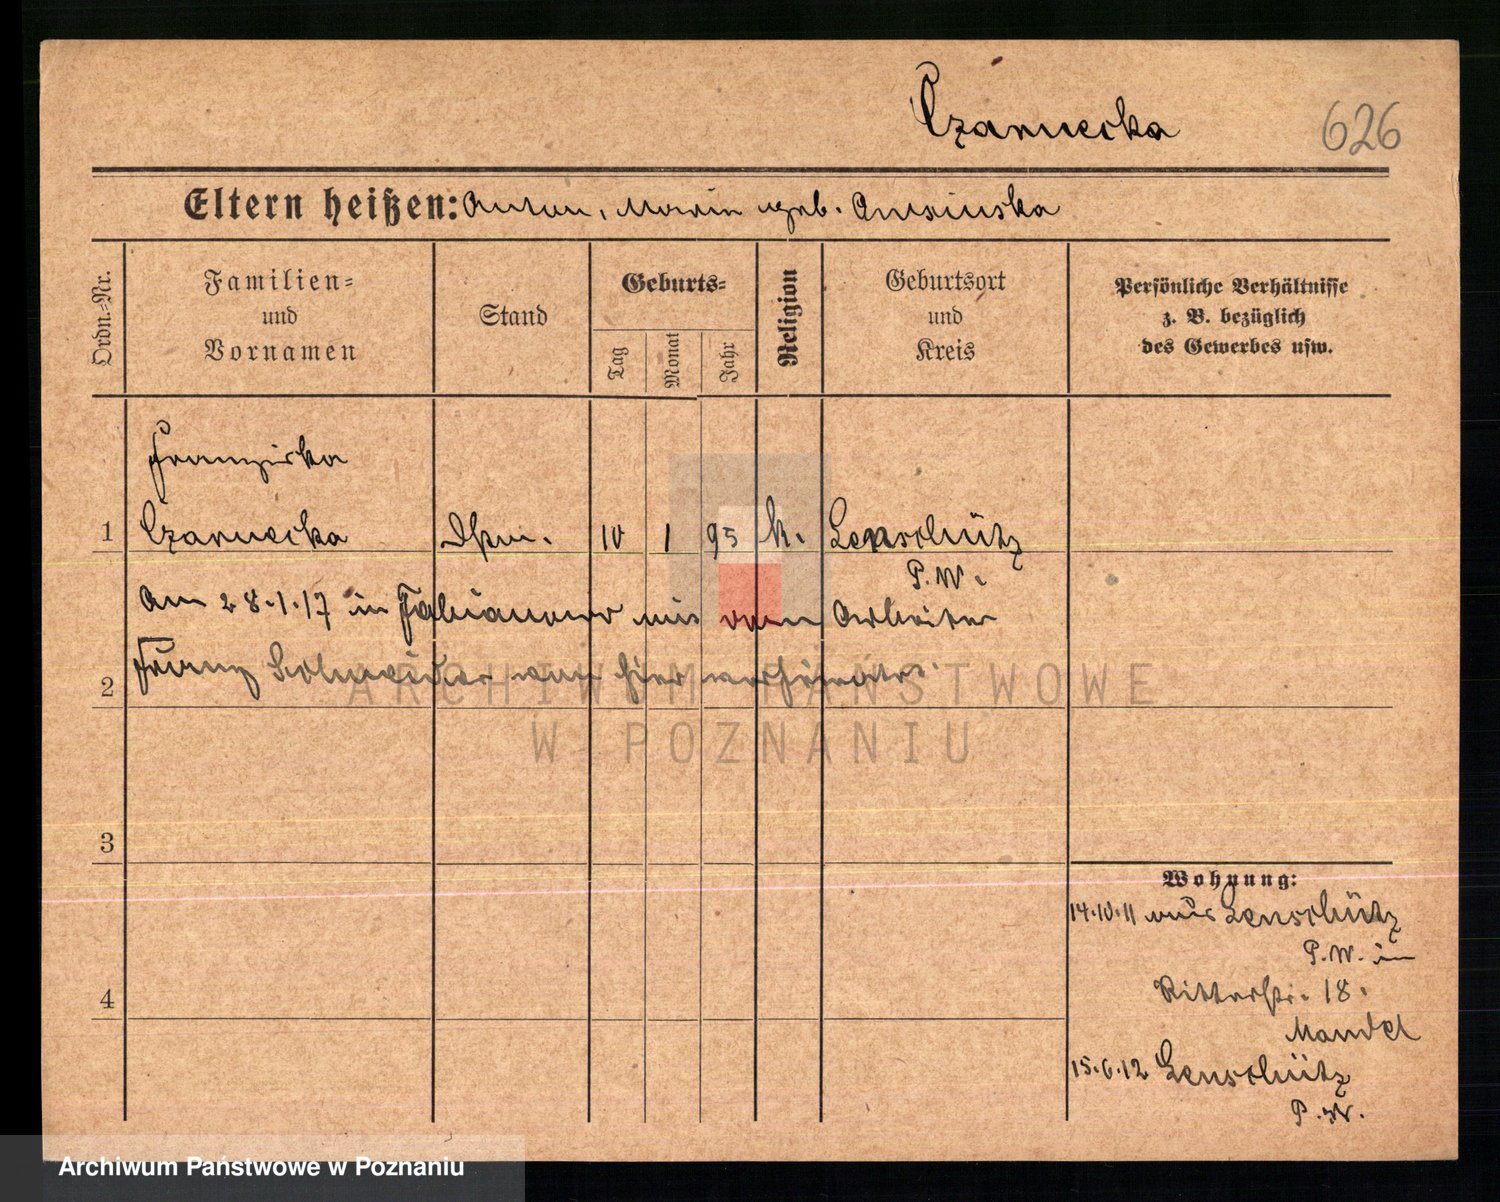 Czarnecka
626
Eltern heißen: Anton, Maria geb. Qusinska
Ordn.=Nr.
Familien=
und
Vornamen
Stand
Geburts=
Tag
Monat
Jahr
Religion
Geburtsort
und
Kreis
Persönliche Verhältnisse
z. B. bezüglich
des Gewerbes usw.
Franziska
1 Czarnecka Dstm. 10 1 95 k. Lenschütz
P. W.
Am 28.1.17 in Fabianowo mit dem Arbeiter
2 Franz Schneider von hier verheirat.
3
4
Wohnung:
14.10.11 aus Lenschütz
P. W. in
Ritterstr. 18.
Mandel
15.6.12 Lenschütz
P. W.
ARCHIWUM PAŃSTWOWE
W POZNANIU
Archiwum Państwowe w Poznaniu